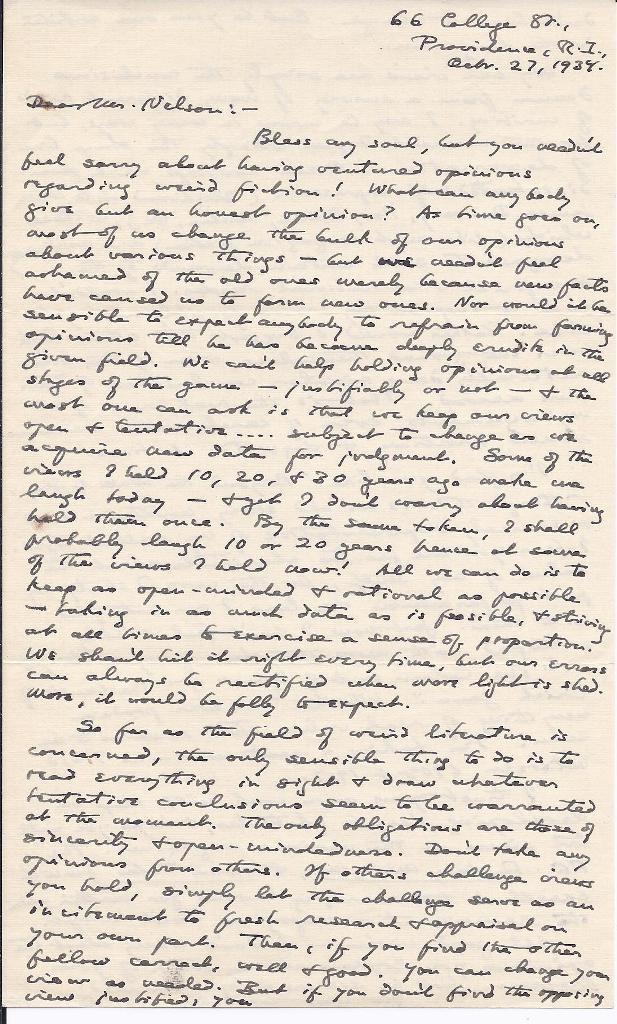 66 College St.,
Providence, R.I.,
Octr. 27, 1934.
Dear Mr. Nelson:—
Bless my soul, but you needn't
feel sorry about having ventured opinions
regarding weird fiction! What can anybody
give but an honest opinion? As time goes on,
most of us change the bulk of our opinions
about various things — but needn't feel
ashamed of the old ones merely because new facts
have caused us to form new ones. Nor would it be
sensible to expect anybody to refrain from forming
opinions till he has become deeply erudite in the
given field. We can't help holding opinions at all
stages of the game — justifiably or not — & the
most one can ask is that we keep our views
open & tentative .... subject to change as we
acquire new data for judgment. Some of the
views I held 10, 20, & 30 years ago make me
laugh today — & yet I don't worry about having
held them once. By the same token, I shall
probably laugh 10 or 20 years hence at some
of the views I hold now! All we can do is to
keep as open-minded & rational as possible
— taking in as much data as is feasible, & striving
at all times to exercise a sense of proportion.
We shan't hit it right every time, but our errors
can always be rectified when more light is shed.
More, it would be folly to expect.
So far as the field of weird literature is
concerned, the only sensible thing to do is to
read everything in sight & draw whatever
tentative conclusions seem to be warranted
at the moment. The only obligations are those of
sincerity & open-mindedness. Don't take any
opinions from others. If others challenge views
you hold, simply let the challenge serve as an
incitement to fresh research & appraisal on
your own part. Then, if you find the other
fellow correct, well & good. You can change your
view as needed. But if you don't find the opposing
view justified, you